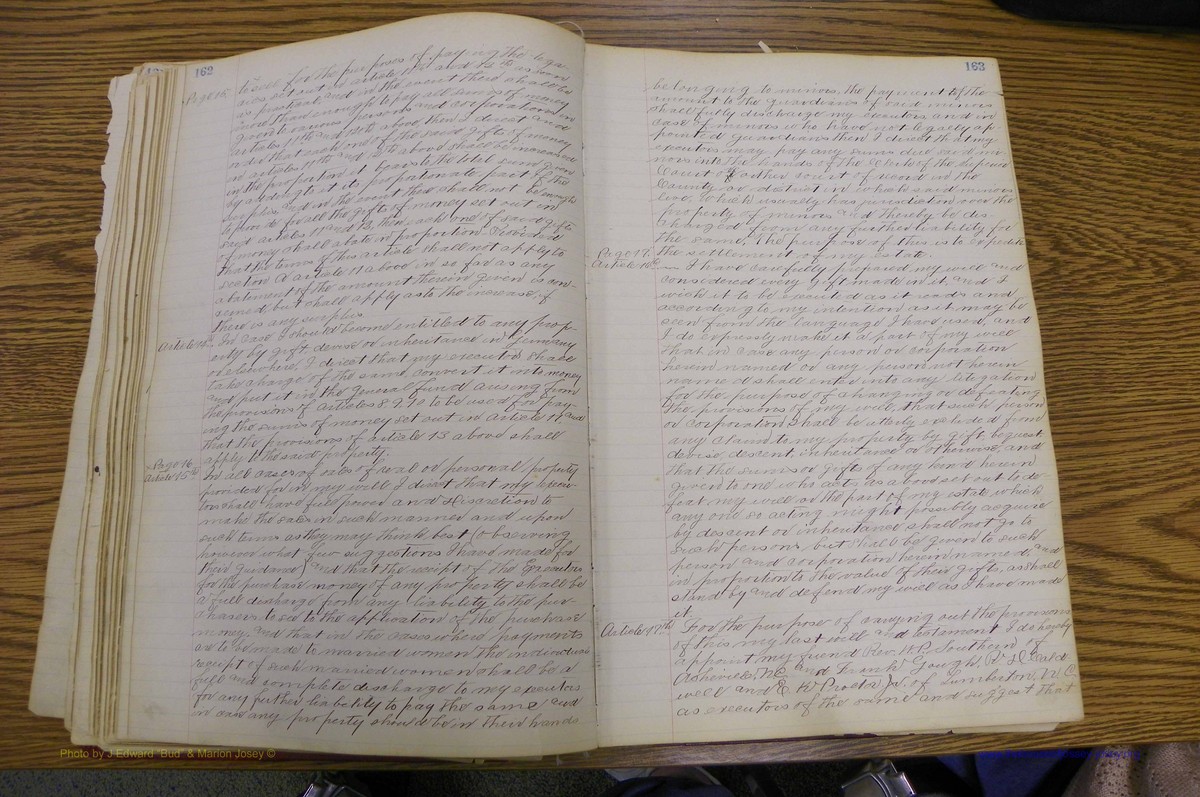 162
Page 15
to sell for the purposes of paying the lega-
cies set out in articles 11th and 13th as soon
as practical and in the event there shall be
more than enough to pay all sums of money
given to various persons and corporations in
articles 11th and 12th above, then I direct and
order that each one of the said gifts of money
in articles 11th and 12th above shall be increased
in the proportion it bears to the total sum given
by adding to it its proportionate part of the
surplus and in the event there shall not be enough
to provide for all the gifts of money set out in
said articles 11 and 13, then each one of said gifts
of money shall abate in proportion. Provided
that the terms of this article shall not apply to
section of article 11 above in so far as any
abatement of the amount therein given is con-
cerned, but shall apply as to the increase, if
there is any surplus.
Article 14th
In case I should become entitled to any prop-
erty by gift, devise or inheritance in Germany
or elsewhere, I direct that my executors shall
take charge of the same, convert it into money
and put it in the general fund arising from
the provisions of articles 8. 9. 10 to be used for pay-
ing the sums of money set out in article 11 and
that the provisions of article 13 above shall
apply to the said property.
Page 16
Article 15th
In all cases of sales of real or personal property
provided for in my will I direct that my execu-
tors shall have full power and discretion to
make the sales in such manner and upon
such terms as they may think best (observing
however what few suggestions I have made for
their guidance) and that the receipt of the Executors
for the purchase money of any property shall be
a full discharge from any liability to the pur-
chasers to see to the application of the purchase
money, and that in the cases where payments
are to be made to married women the individual
receipt of such married women shall be a
full and complete discharge to my executors
for any further liability to pay the same and
in case any property should be in their hands
163
belonging to minors, the payment of the
amount to the guardians of said minors
shall fully discharge my executors and in
case of minors who have not legally ap-
pointed guardians then I direct that my
executors may pay any sums due said mi-
nors into the hands of the Clerk of the Superior
Court or other court of record in the
County or district in which said minors
live, which usually has jurisdiction over the
property of minors and thereby be dis-
charged from any further liability for
the same. The purpose of this is to expedite
the settlement of my estate.
Page 17.
Article 16th
I have carefully prepared my will and
considered every gift made in it and I
wish it to be executed as it reads and
according to my intention as it may be
seen from the language I have used, and
I do expressly make it a part of my will
that in case any person or corporation
herein named or any person not herein
named shall enter into any litigation
for the purpose of changing or defeating
the provisions of my will, that such person
or corporation shall be utterly excluded from
any claim to my property by gift, bequest,
devise, descent, inheritance or otherwise, and
that the sums or gifts of any kind herein
given to one who acts as above set out to de-
feat my will or the part of my estate which
any one so acting might possibly acquire
by descent or inheritance shall not go to
such persons, but shall be given to such
person and corporation herein named and
in proportion to the value of their gifts, as shall
stand by and defend my will as I have made
it.
Article 17th
For the purpose of carrying out the provisions
of this my last will and testament I do hereby
appoint my friend Rev. W. P. Southern of
Asheville, N.C. and Frank Gough, D. H. Cald-
well and E. K. Proctor Jr. of Lumberton, N.C.
as executors of the same and suggest that
Photo by J Edward "Bud" & Marion Josey ©